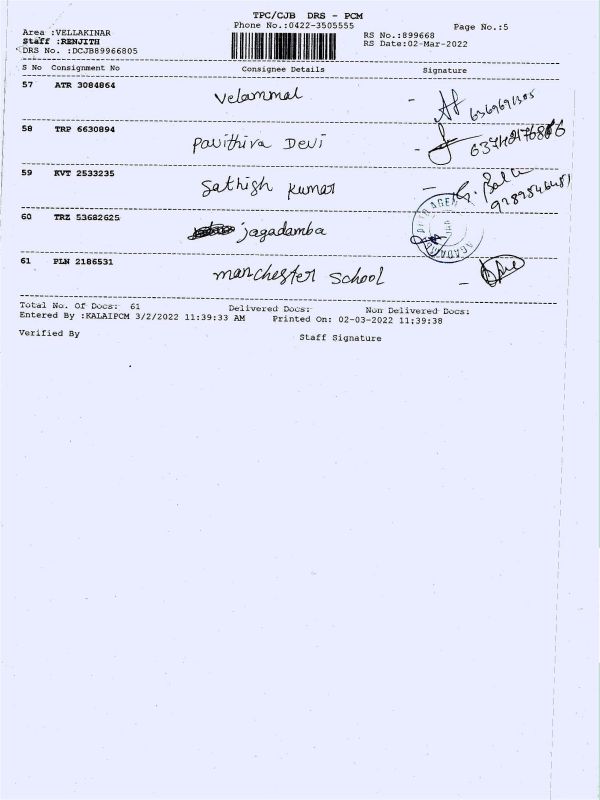 TPC/CJB DRS - PCM
Phone No.:0422-3505555
Page No.:5
Area :VELLAKINAR
Staff :RENJITH
DRS No. :DCJB89966805
RS No.:899668
RS Date:02-Mar-2022
S No Consignment No Consignee Details Signature
57 ATR 3084864 Velammal
58 TRP 6630894 Pavithira Devi
59 KVT 2533235 Sathish Kumar
60 TRZ 53682625 jagadamba
61 PLN 2186531 manchester School
Total No. Of Docs: 61 Delivered Docs: Non Delivered Docs:
Entered By :KALAIPCM 3/2/2022 11:39:33 AM Printed On: 02-03-2022 11:39:38
Verified By Staff Signature